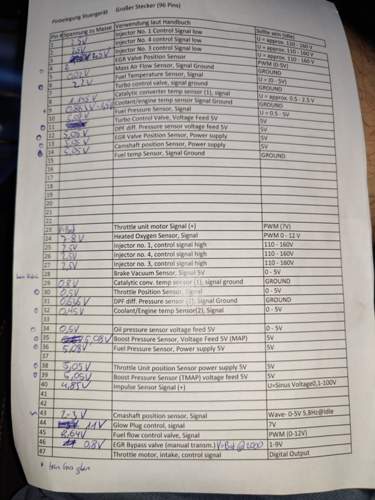 Pinbelegung Steuergerät Großer Stecker (96 Pins)
Pin # Spannung zu Masse Verwendung laut Handbuch Sollte sein (Idle)
Injector No. 1 Control Signal low U = approx. 110 - 160 V
Injector No. 4 control signal low U = approx. 110 - 160 V
Injector No. 3 control signal low U = approx. 110 - 160 V
EGR Valve Position Sensor PWM (0-5V)
Mass Air Flow Sensor, Signal Ground GROUND
Fuel Temperature Sensor, Signal U = (0 - 5V)
Turbo control valve, signal ground GROUND
Catalytic converter temp sensor (1), signal U = approx. 0.5 - 2.5 V
Coolant/engine temp sensor Signal Ground GROUND
Fuel Pressure Sensor, Signal U = 0.5 - 5V
Turbo Control Valve, Voltage Feed 5V 5V
11 DPF diff. Pressure sensor voltage feed 5V 5V
12 5,05V EGR Valve Position Sensor, Power supply 5V
13 Camshaft position Sensor, Power supply 5V
14 5,05V Fuel temp Sensor, Signal Ground GROUND
15
16
17
18
19
20
21
22
23 Throttle unit motor Signal (+) PWM (7V)
24 7-8V Heated Oxygen Sensor, Signal PWM 0 - 12 V
25 2,5V Injector no. 1, control signal high 110 - 160V
26 2,5V Injector no. 4, control signal high 110 - 160V
27 2,5V Injector no. 3, control signal high 110 - 160V
28 Brake Vacuum Sensor, Signal 5V 0 - 5V
29 0,8V Catalytic conv. temp sensor (1), signal ground GROUND
30 0,5V Throttle Position Sensor, Signal 0 - 5V
31 DPF diff. Pressure sensor (1), Signal Ground GROUND
32 0,45V Coolant/Engine temp Sensor(2), Signal 0 - 5V
33
34 0,5V Oil pressure sensor voltage feed 5V 0 - 5V
35 5,08V Boost Pressure Sensor, Voltage Feed 5V (MAP) 5V
36 5,08V Fuel Pressure Sensor, Power supply 5V 5V
37
38 5,05V Throttle Unit Position Sensor power supply 5V 5V
39 5,05V Boost Pressure Sensor (TMAP) voltage feed 5V 5V
40 4,85V Impulse Sensor Signal (+) U=Sinus Voltage0,1-100V
41
42
43 2-3V Cmashaft position sensor, Signal Wave- 0-5V 5,8Hz@Idle
44 11V Glow Plug control, signal 7V
45 8,64V Fuel flow control valve, Signal PWM (0-12V)
46 0,8V EGR Bypass valve (manual transm.) 1-9V
47 Throttle motor, intake, control signal Digital Output